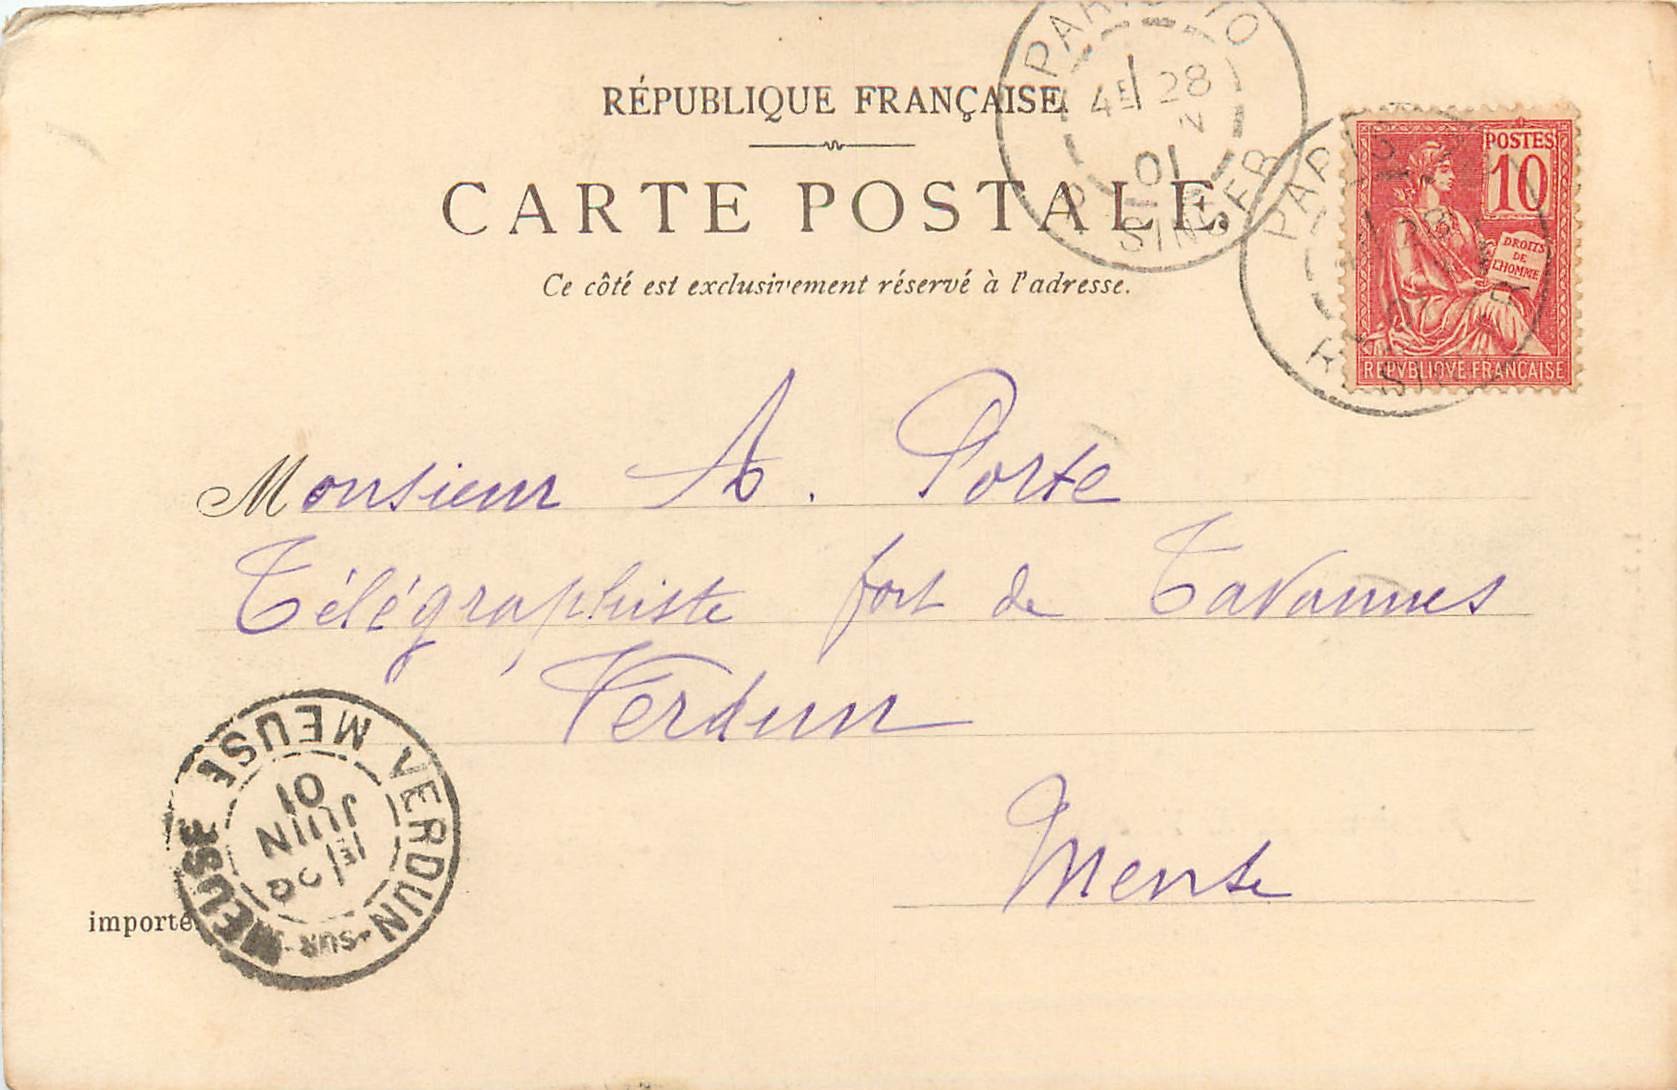 RÉPUBLIQUE FRANÇAISE.
CARTE POSTALE.
Ce côté est exclusivement réservé à l'adresse.
4E 28
01
SINGER
POSTES
10
DROITS
DE
L'HOMME
REPVBLIQVE FRANÇAISE
PARIS
28
Monsieur A. Porte
Télégraphiste fort de Tavannes
Verdun
Meuse
VERDUN-SUR-MEUSE
MEUSE
JUIN
01
importé